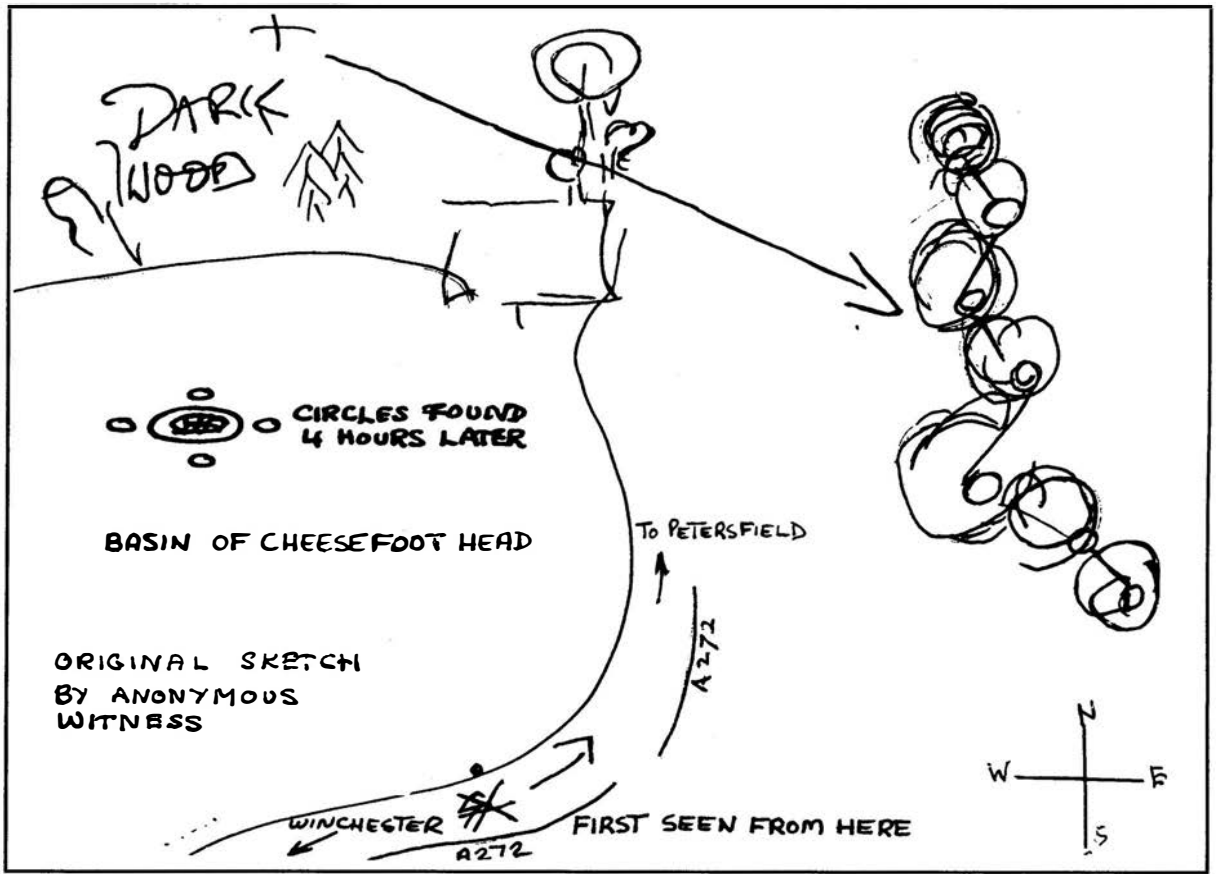 DARK
WOOD
CIRCLES FOUND
4 HOURS LATER
BASIN OF CHEESEFOOT HEAD
TO PETERSFIELD
A272
ORIGINAL SKETCH
BY ANONYMOUS
WITNESS
N
W E
S
WINCHESTER
FIRST SEEN FROM HERE
A272